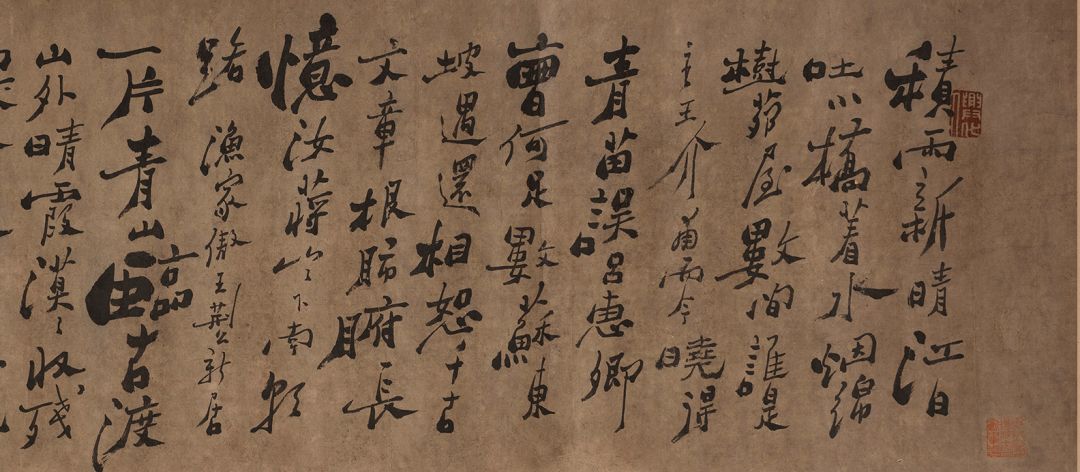 積雨新晴江日
吐小橋着水烟綿
樹茆屋數間誰是
主王介甫而今曉得
青苗誤呂惠卿
曹何足數蘇東
坡遇還相恕千古
文章根肺腑長
憶汝蔣山〻下南朝
路 漁家傲王荊公新居
一片青山臨古渡
山外晴霞漠〻收殘